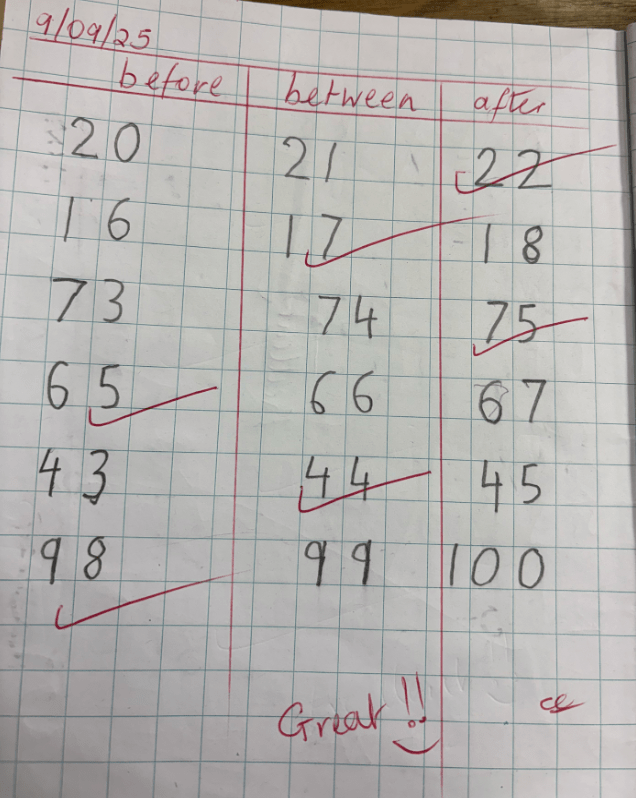 9/09/25
before between after
20 21 22
16 17 18
73 74 75
65 66 67
43 44 45
98 99 100
Great!!